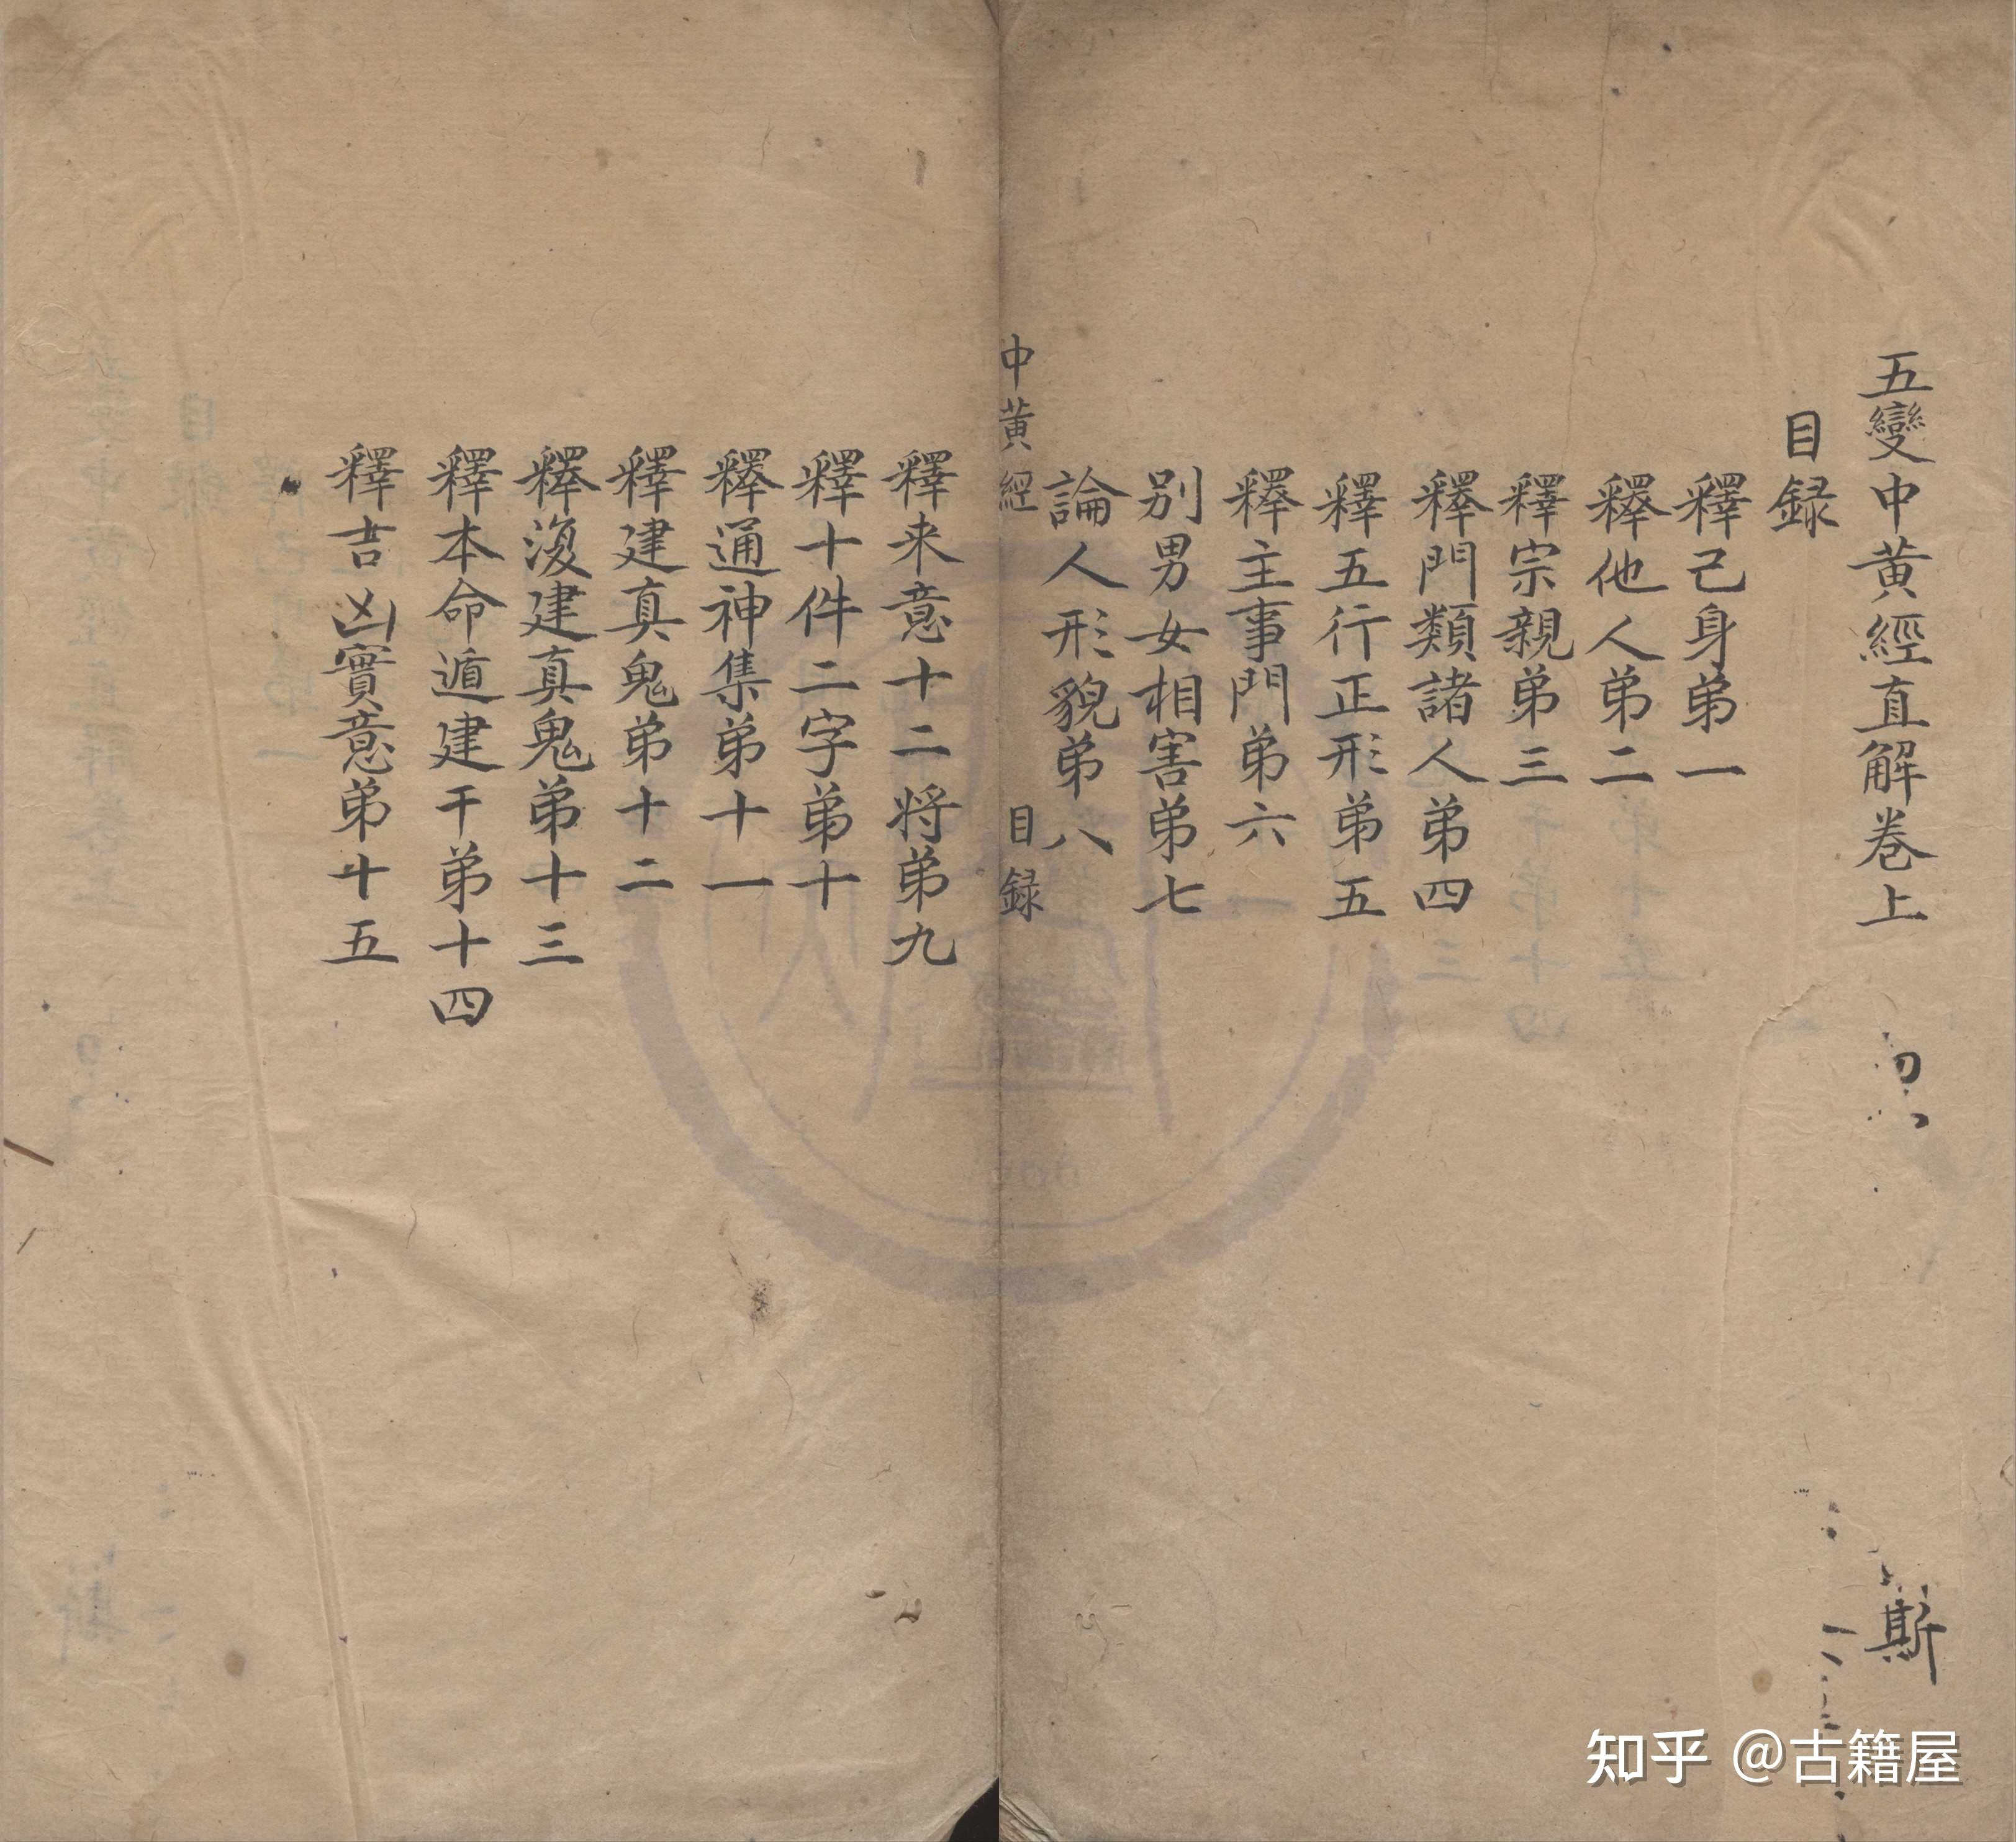 五變中黄經直解卷上
目録
釋己身弟一
釋他人弟二
釋宗親弟三
釋門類諸人弟四
釋五行正形弟五
釋主事門弟六
别男女相害弟七
論人形貌弟八
中黄經 目録
釋来意十二将弟九
釋十件二字弟十
釋通神集弟十一
釋建真鬼弟十二
釋復建真鬼弟十三
釋本命遁建干弟十四
釋吉凶實意弟十五
斯
知乎 @古籍屋